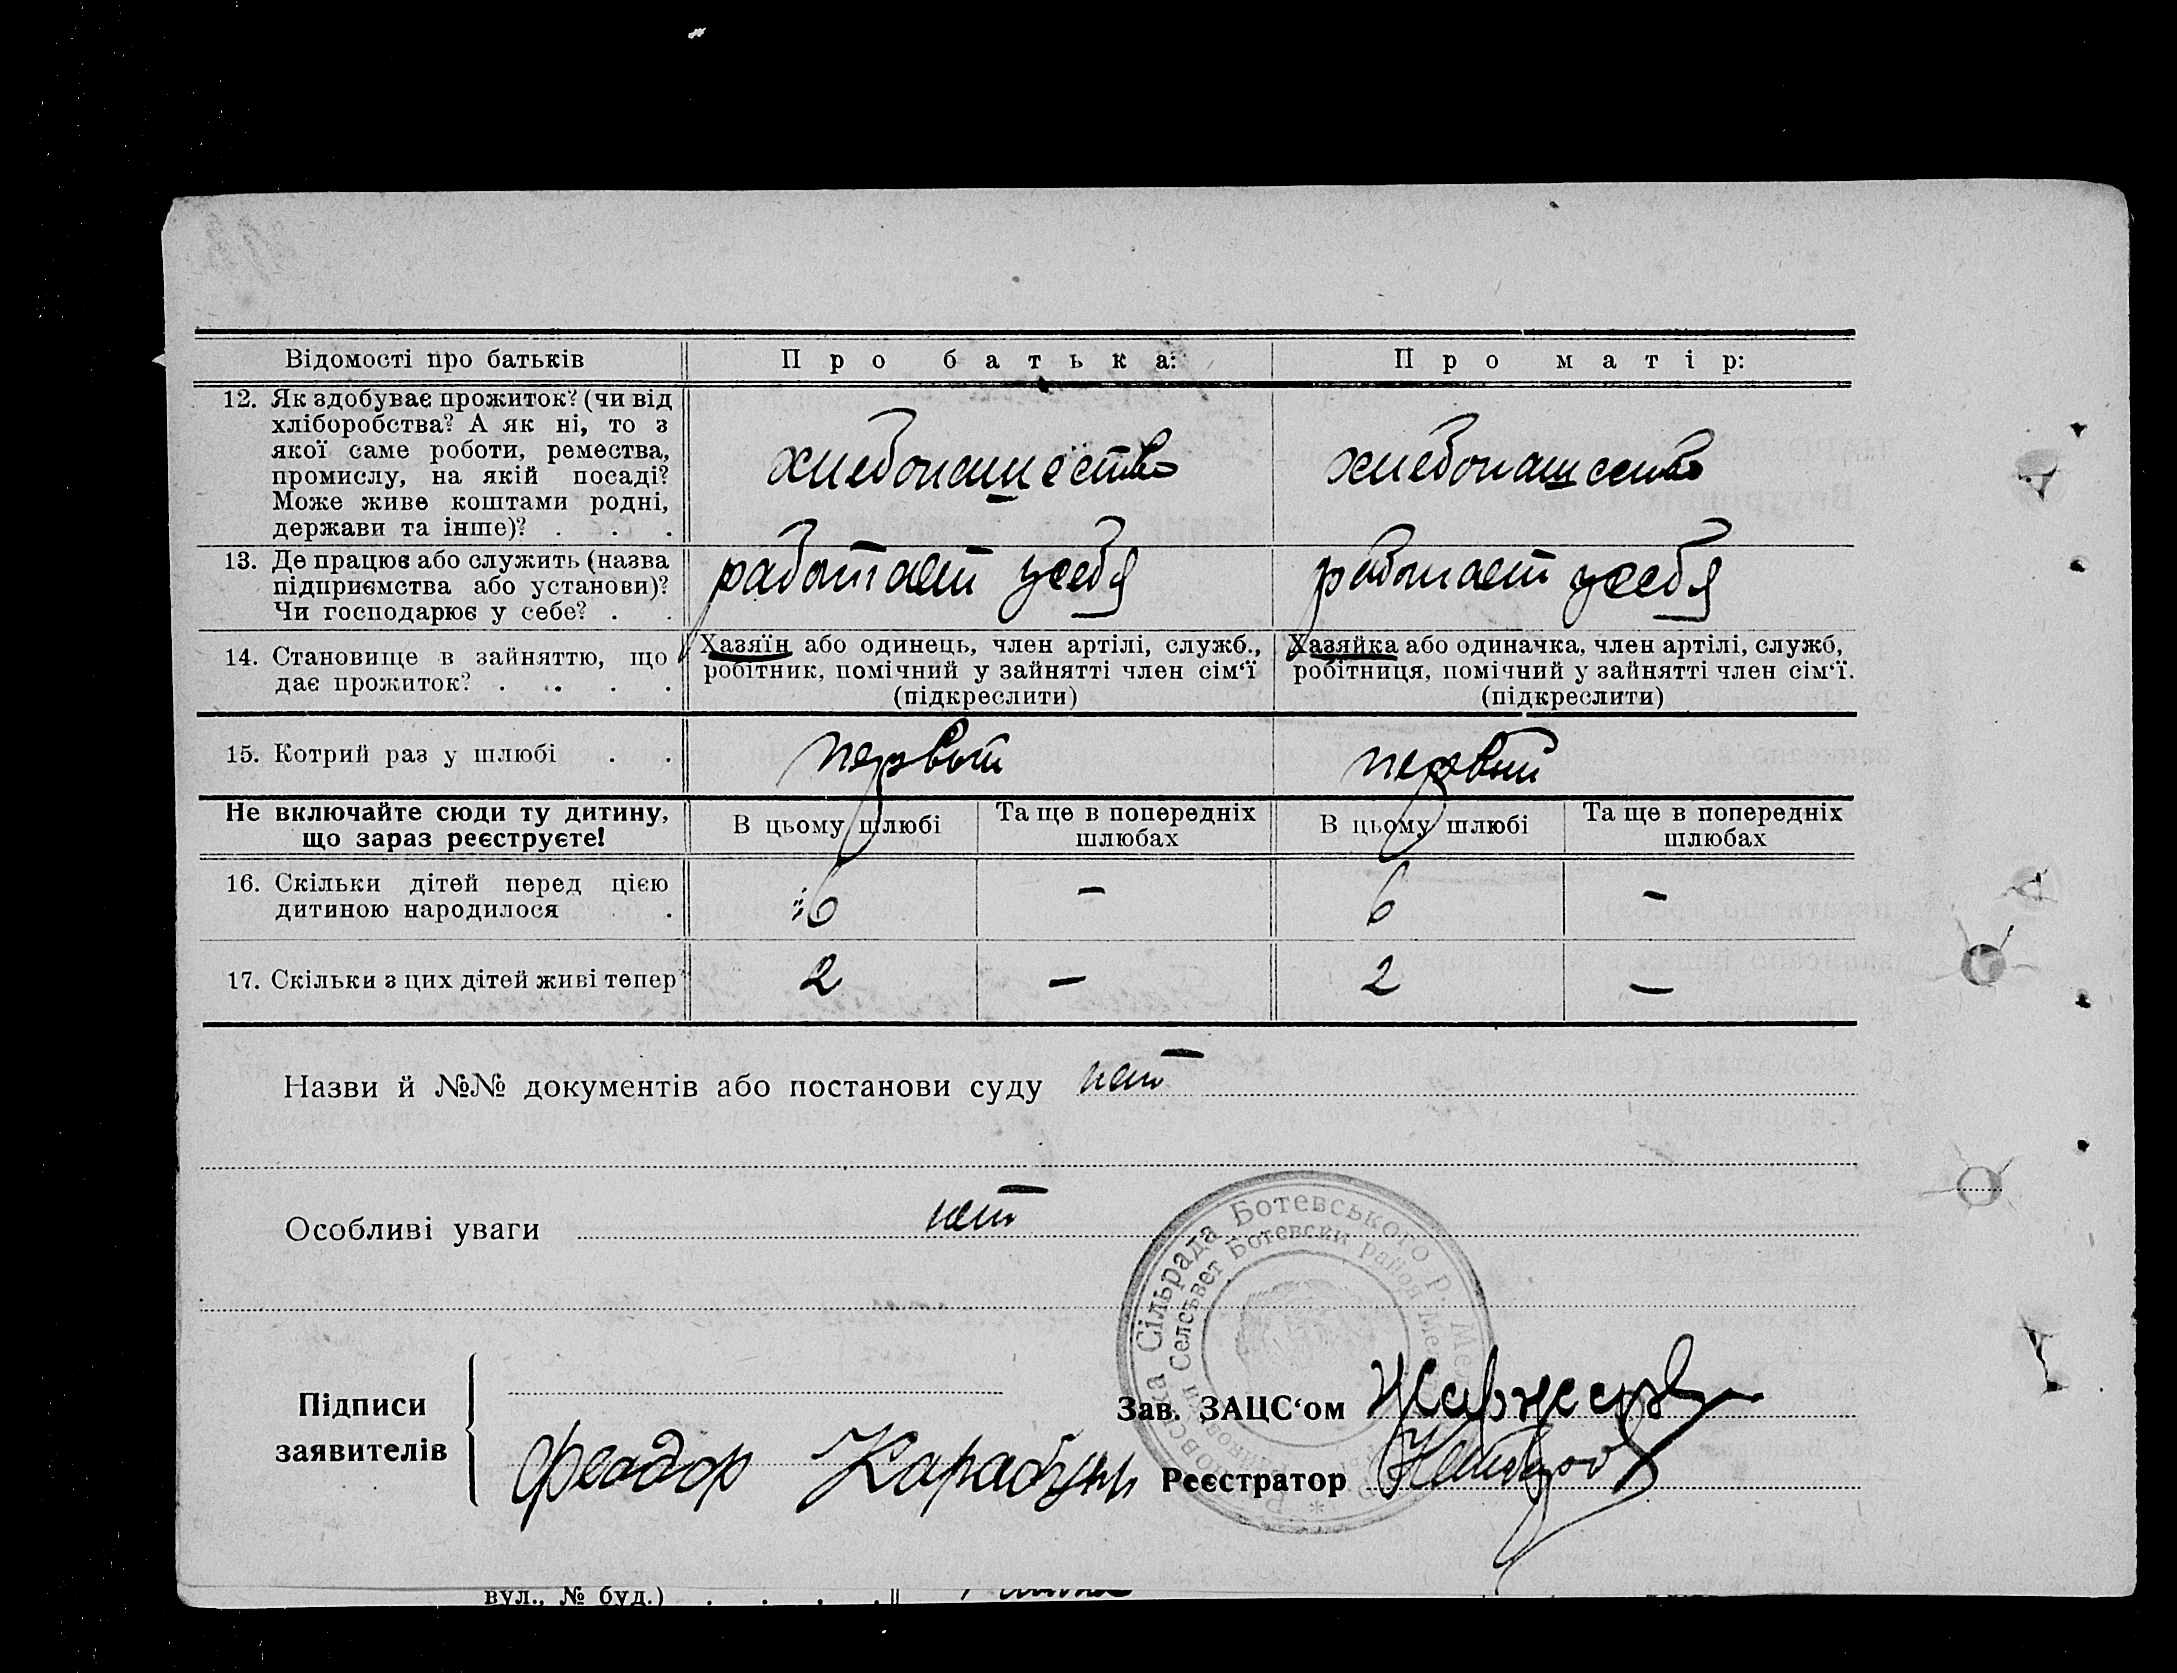 Відомості про батьків
Про батька:
Про матір:
12. Як здобуває прожиток? (чи від
хліборобства? А як ні, то з
якої саме роботи, ремества,
промислу, на якій посаді?
Може живе коштами родні,
держави та інше)? . . .
хлебопашество
хлебопашество
13. Де працює або служить (назва
підприємства або установи)?
Чи господарює у себе? . .
работает у себя
работает у себя
14. Становище в зайняттю, що
дає прожиток? . . . .
Хазяїн або одинець, член артілі, служб.,
робітник, помічний у зайнятті член сім‘ї
(підкреслити)
Хазяйка або одиначка, член артілі, служб,
робітниця, помічний у зайнятті член сім‘ї.
(підкреслити)
15. Котрий раз у шлюбі . .
первый
первый
Не включайте сюди ту дитину,
що зараз реєструєте!
В цьому шлюбі
Та ще в попередніх
шлюбах
В цьому шлюбі
Та ще в попередніх
шлюбах
16. Скільки дітей перед цією
дитиною народилося . .
6
–
6
–
17. Скільки з цих дітей живі тепер
2
–
2
–
Назви й №№ документів або постанови суду нет
Особливі уваги нет
Сільрада Ботевського р.
Селсъвет Ботевски район
Підписи
заявителів
Феодор Карабун
Зав. ЗАЦС‘ом
Реєстратор
вул., № буд.) . . . .